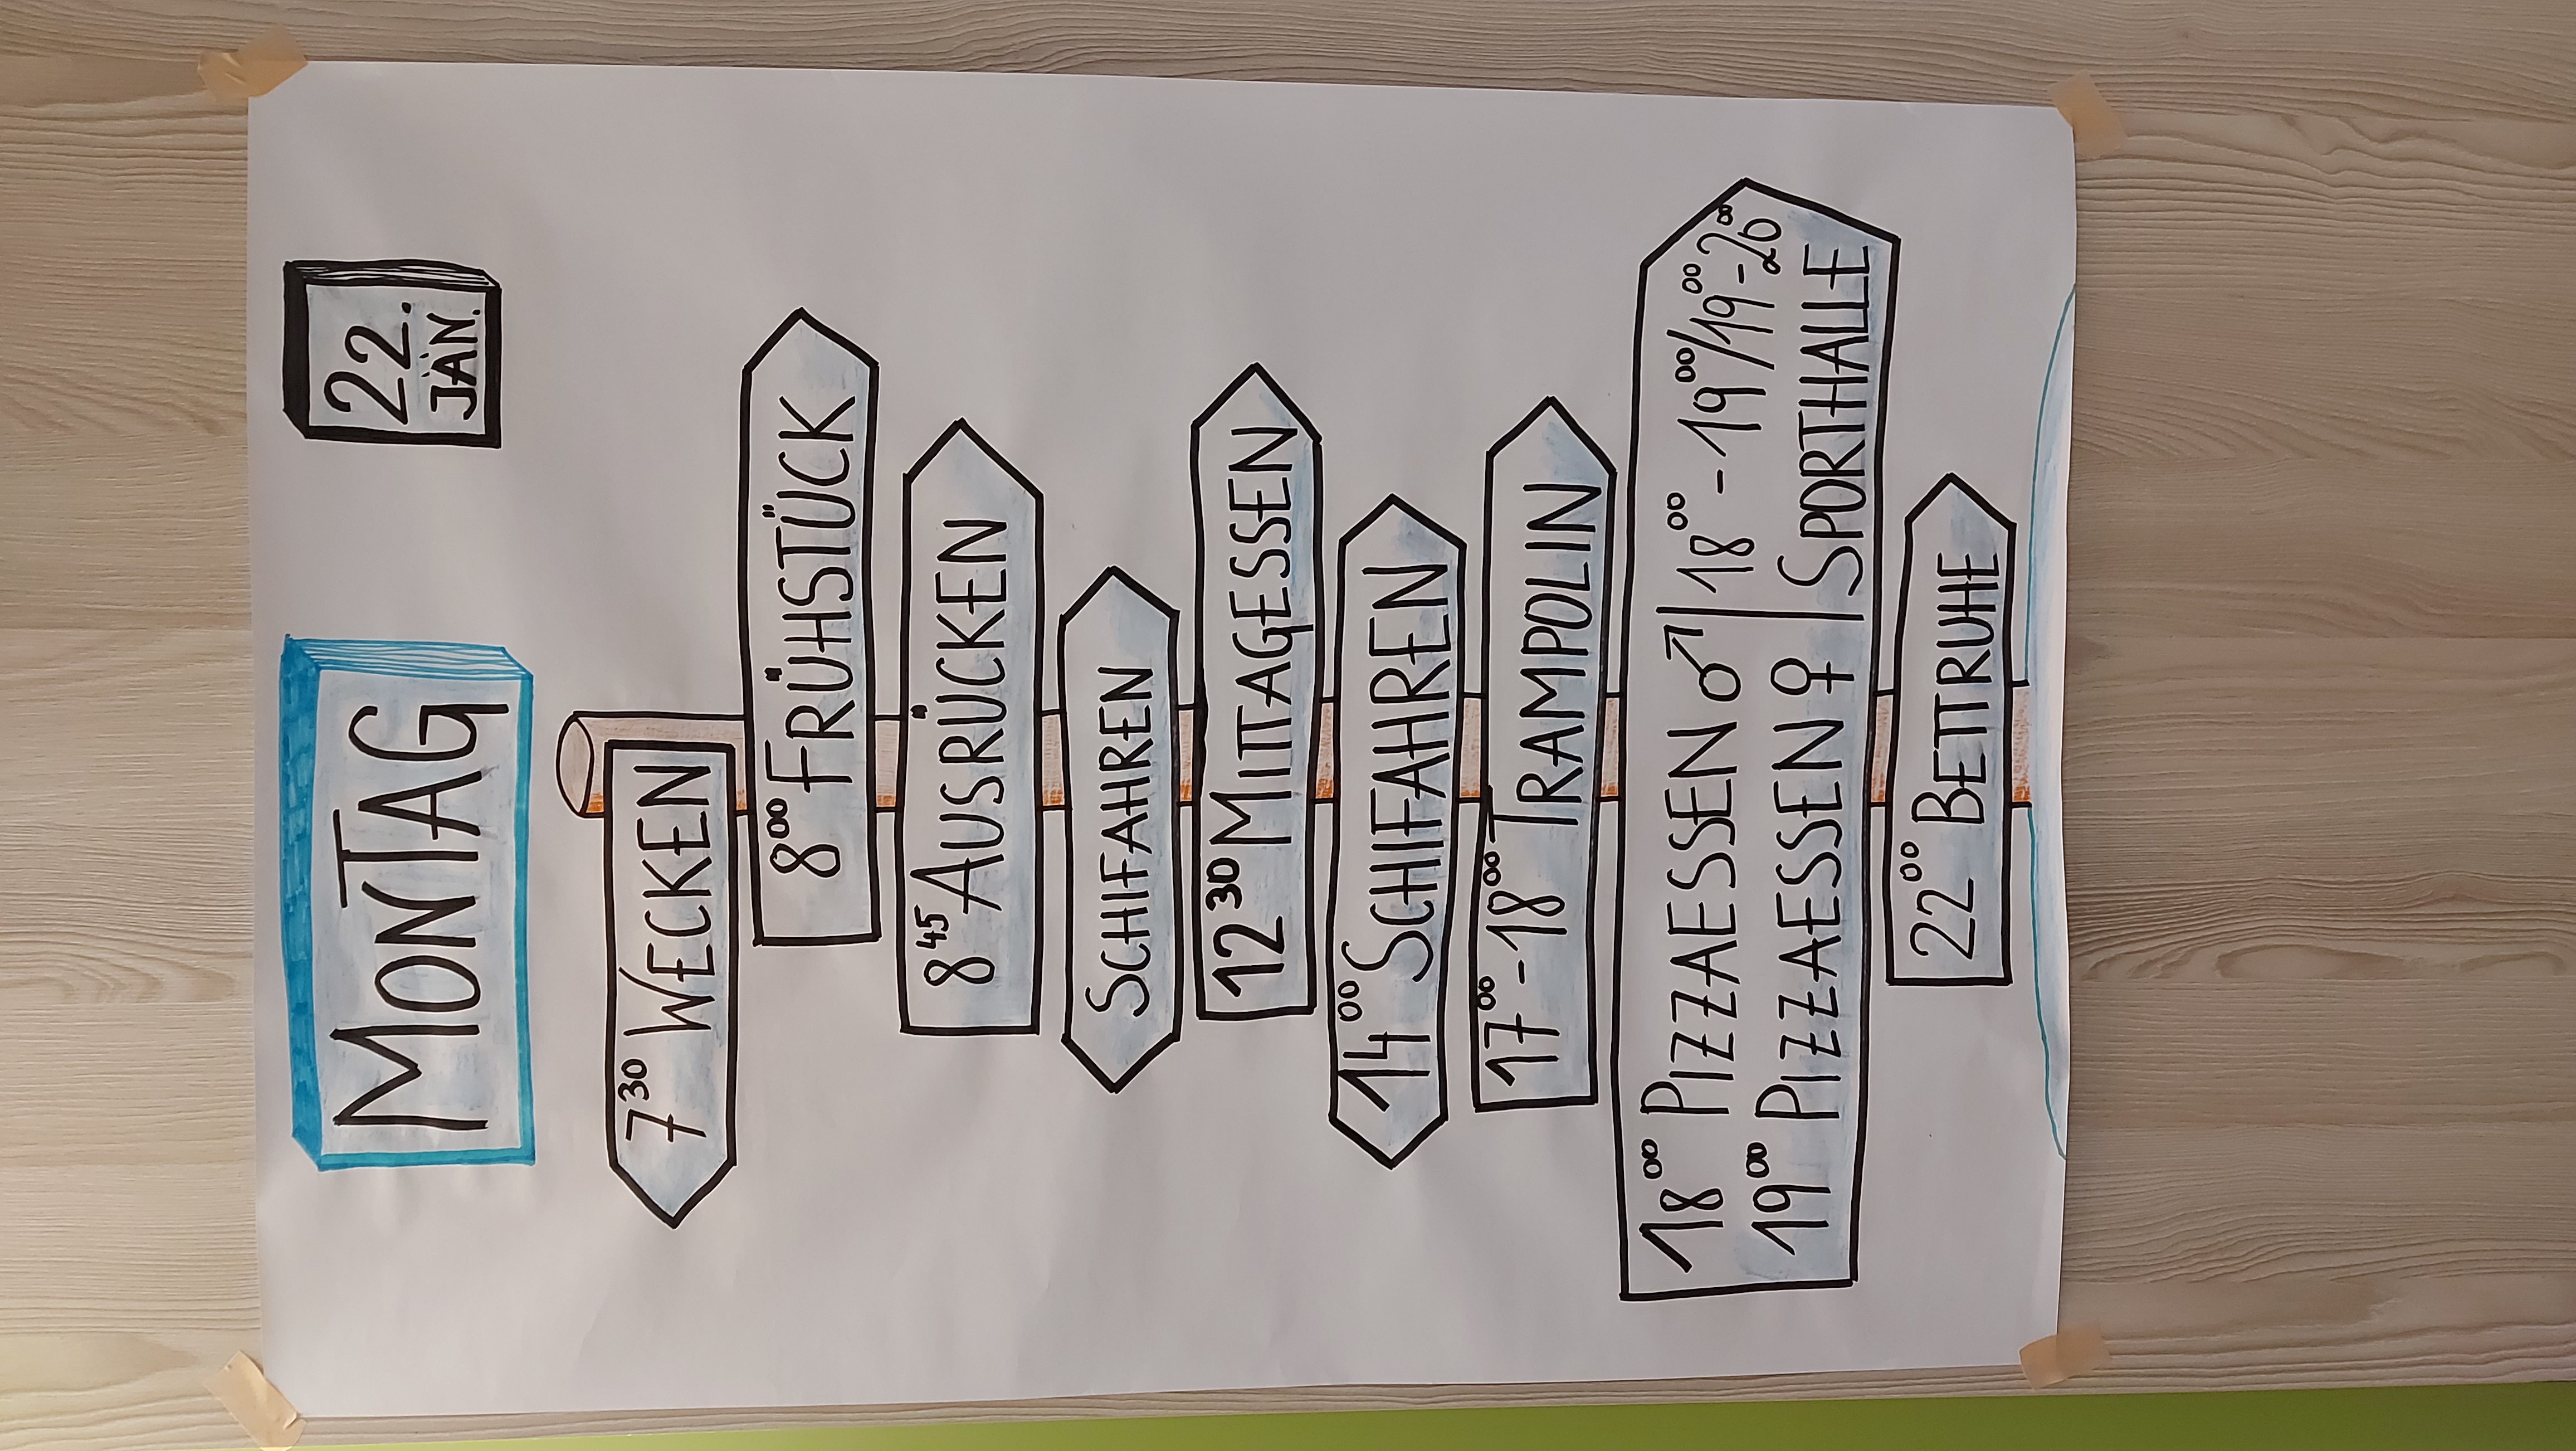 MONTAG
22.
JÄN.
7³⁰ WECKEN
8⁰⁰ FRÜHSTÜCK
8⁴⁵ AUSRÜCKEN
SCHIFAHREN
12³⁰ MITTAGESSEN
14⁰⁰ SCHIFAHREN
17⁰⁰-18⁰⁰ TRAMPOLIN
18⁰⁰ PIZZAESSEN ♂ | 18⁰⁰-19⁰⁰/19⁰⁰-20⁰⁰
19⁰⁰ PIZZAESSEN ♀ | SPORTHALLE
22⁰⁰ BETTRUHE